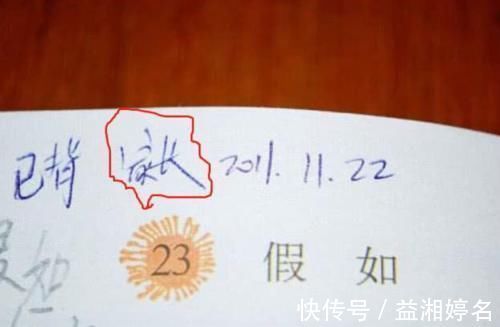 已背 家长 2011.11.22
23 假如
快传号/益湘婷名